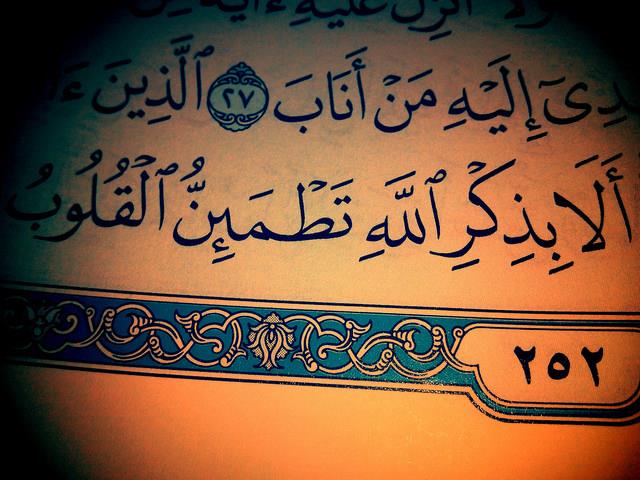 ولا أنزل عليه ءاية من
دِىٓ إِلَيْهِ مَنْ أَنَابَ ٢٧ ٱلَّذِينَ ءَا
أَلَا بِذِكْرِ ٱللَّهِ تَطْمَئِنُّ ٱلْقُلُوبُ
٢٥٢